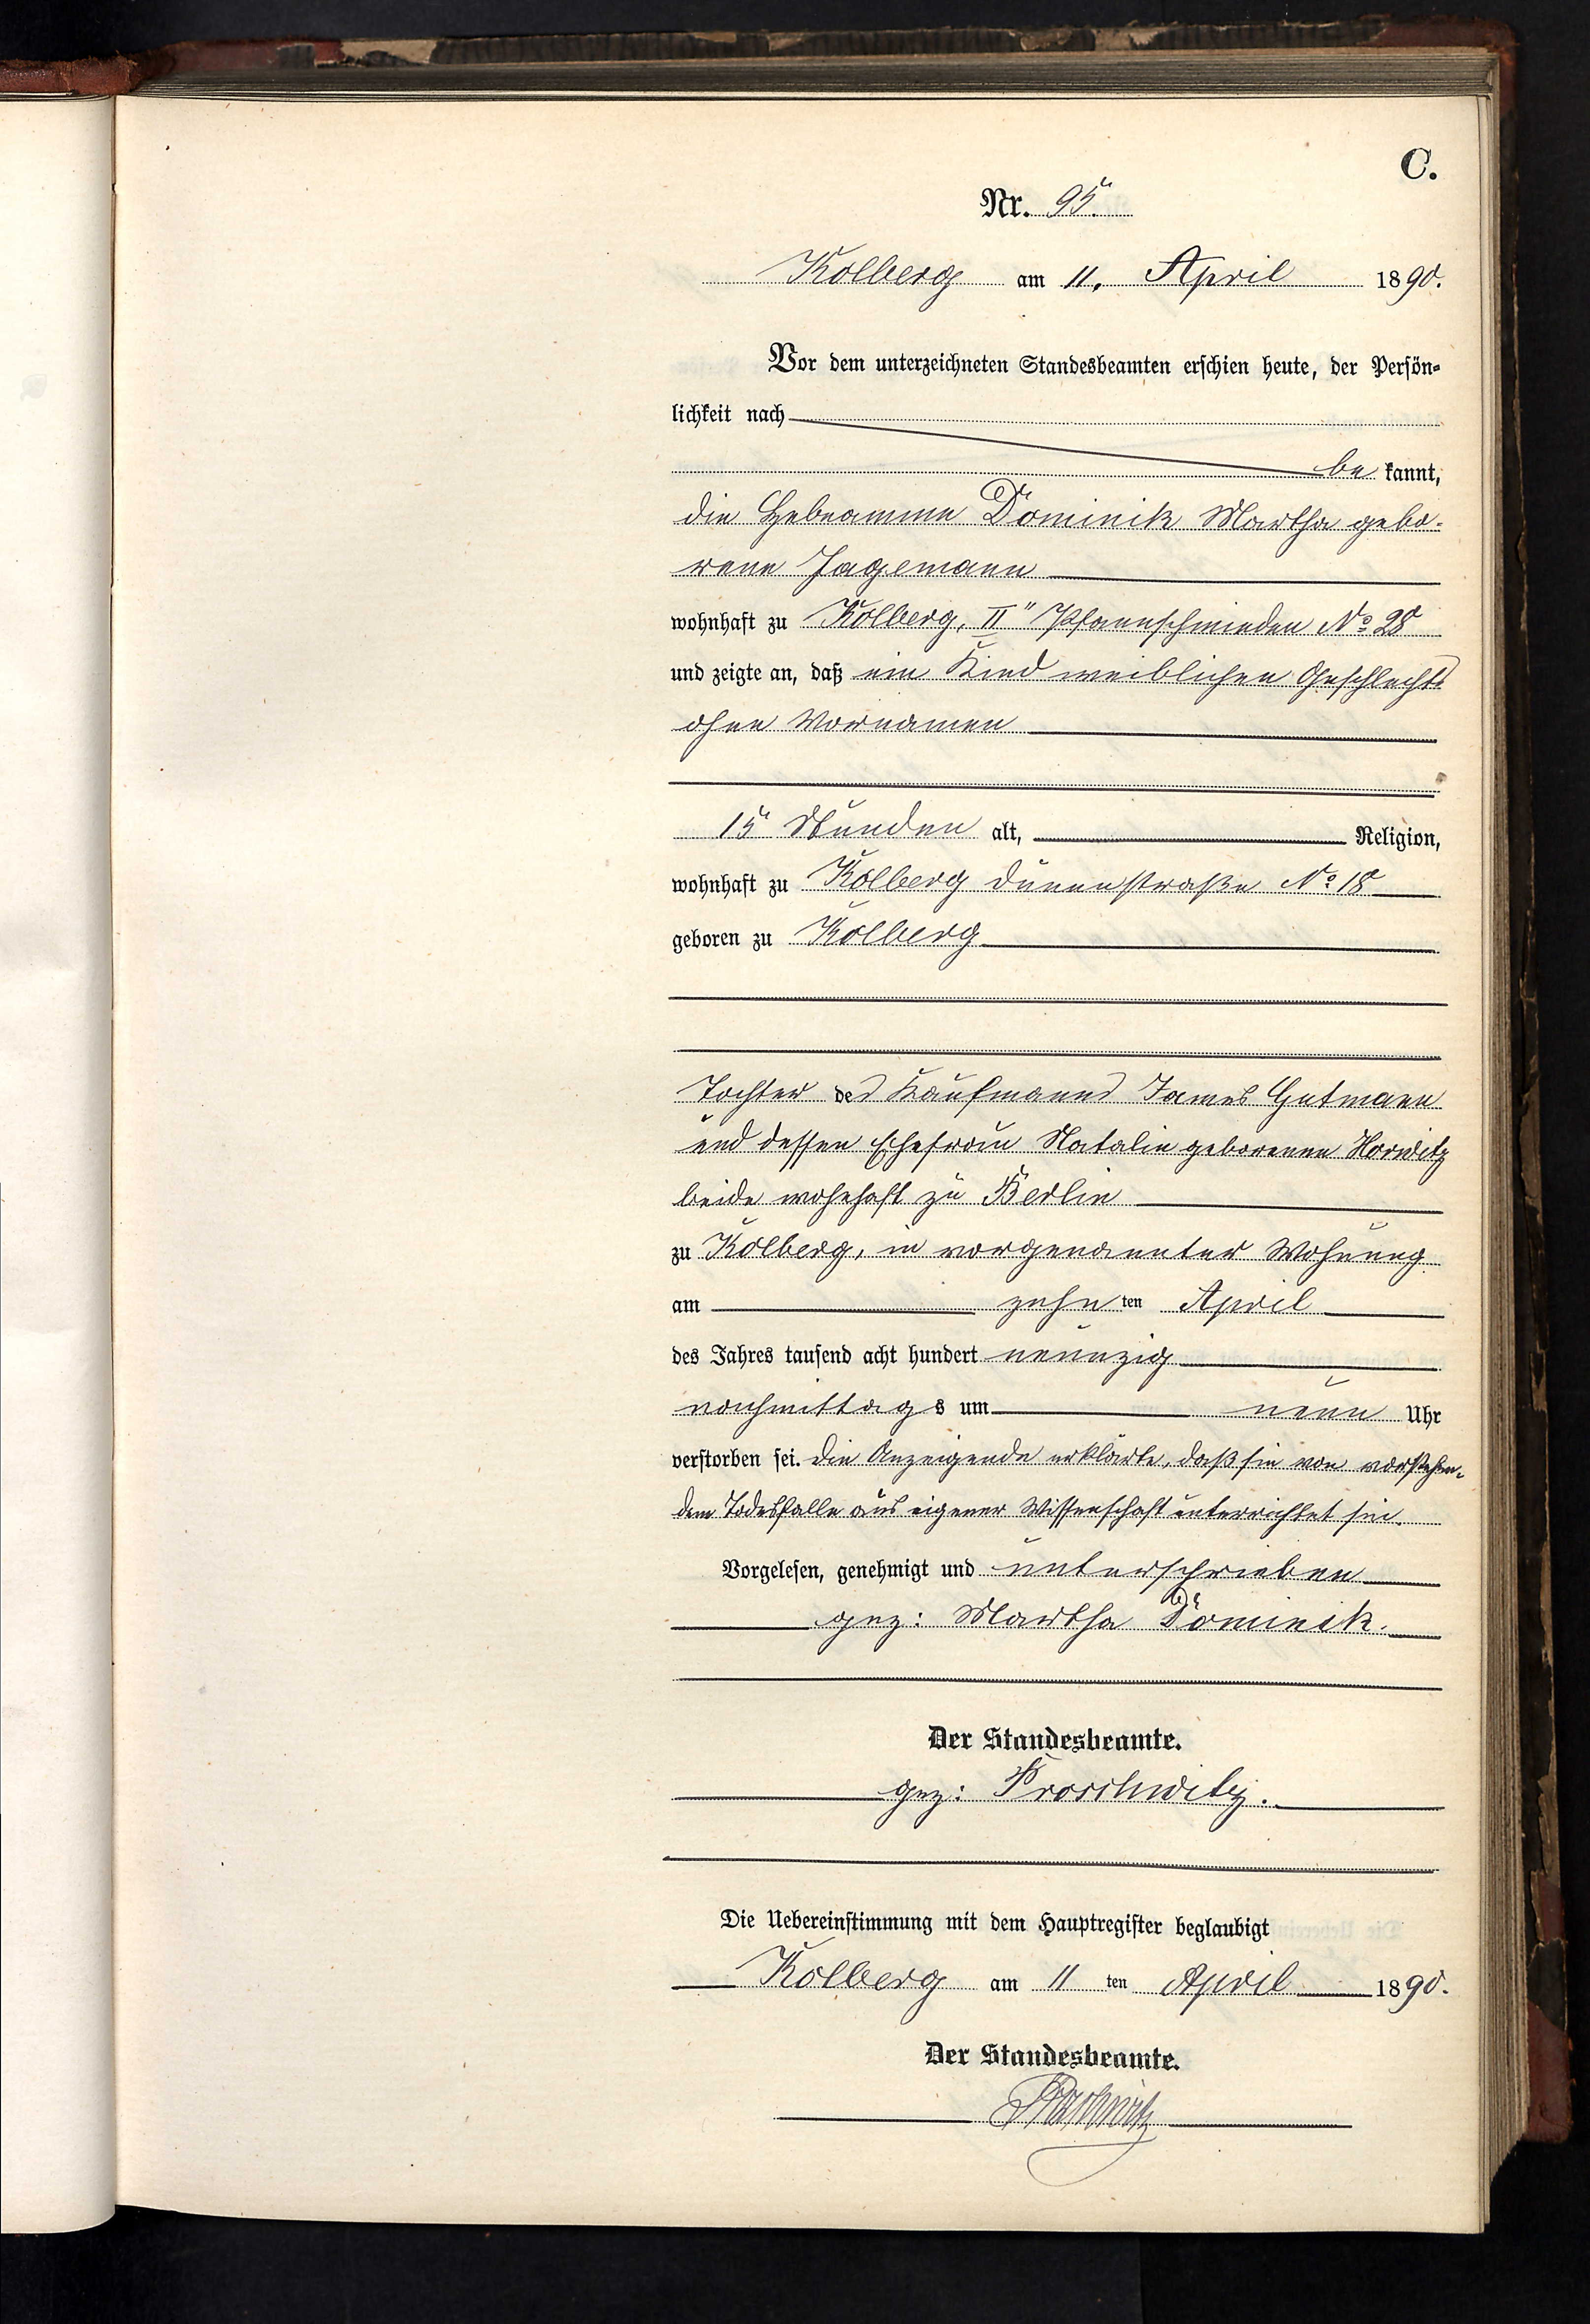 C.
Nr. 95.
Kolberg am 11. April 1890.
Vor dem unterzeichneten Standesbeamten erschien heute, der Persön-
lichkeit nach
be kannt,
die Hebeamme Dominik Martha gebo-
rene Jagemann
wohnhaft zu Kolberg, II" Pfannschmieden No 28
und zeigte an, daß ein Kind weiblichen Geschlechts
ohne Vornamen
15 Stunden alt, Religion,
wohnhaft zu Kolberg Dünenstraße No 18
geboren zu Kolberg
Tochter des Kaufmanns James Gutmann
und dessen Ehefrau Natalie geborenen Horwitz
beide wohnhaft zu Berlin
zu Kolberg, in vorgenannter Wohnung
am zehn ten April
des Jahres tausend acht hundert neunzig
nachmittags um neun Uhr
verstorben sei. Die Anzeigende erklärte, daß sie von vorstehen-
dem Todesfalle aus eigener Wissenschaft unterrichtet sei.
Vorgelesen, genehmigt und unterschrieben
gez: Martha Dominik.
Der Standesbeamte.
gez: Proschwitz.
Die Uebereinstimmung mit dem Hauptregister beglaubigt
Kolberg am 11 ten April 1890.
Der Standesbeamte.
Proschwitz